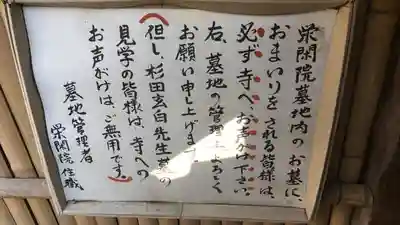 栄閑院墓地内のお墓に、
おまいりをされる皆様は、
必ず寺へ、お声がけ下さい。
右、墓地の管理上よろしく
お願い申し上げます。
但し、杉田玄白先生墓の
見学の皆様は、寺への
お声がけは、ご無用です。
墓地管理者
栄閑院住職